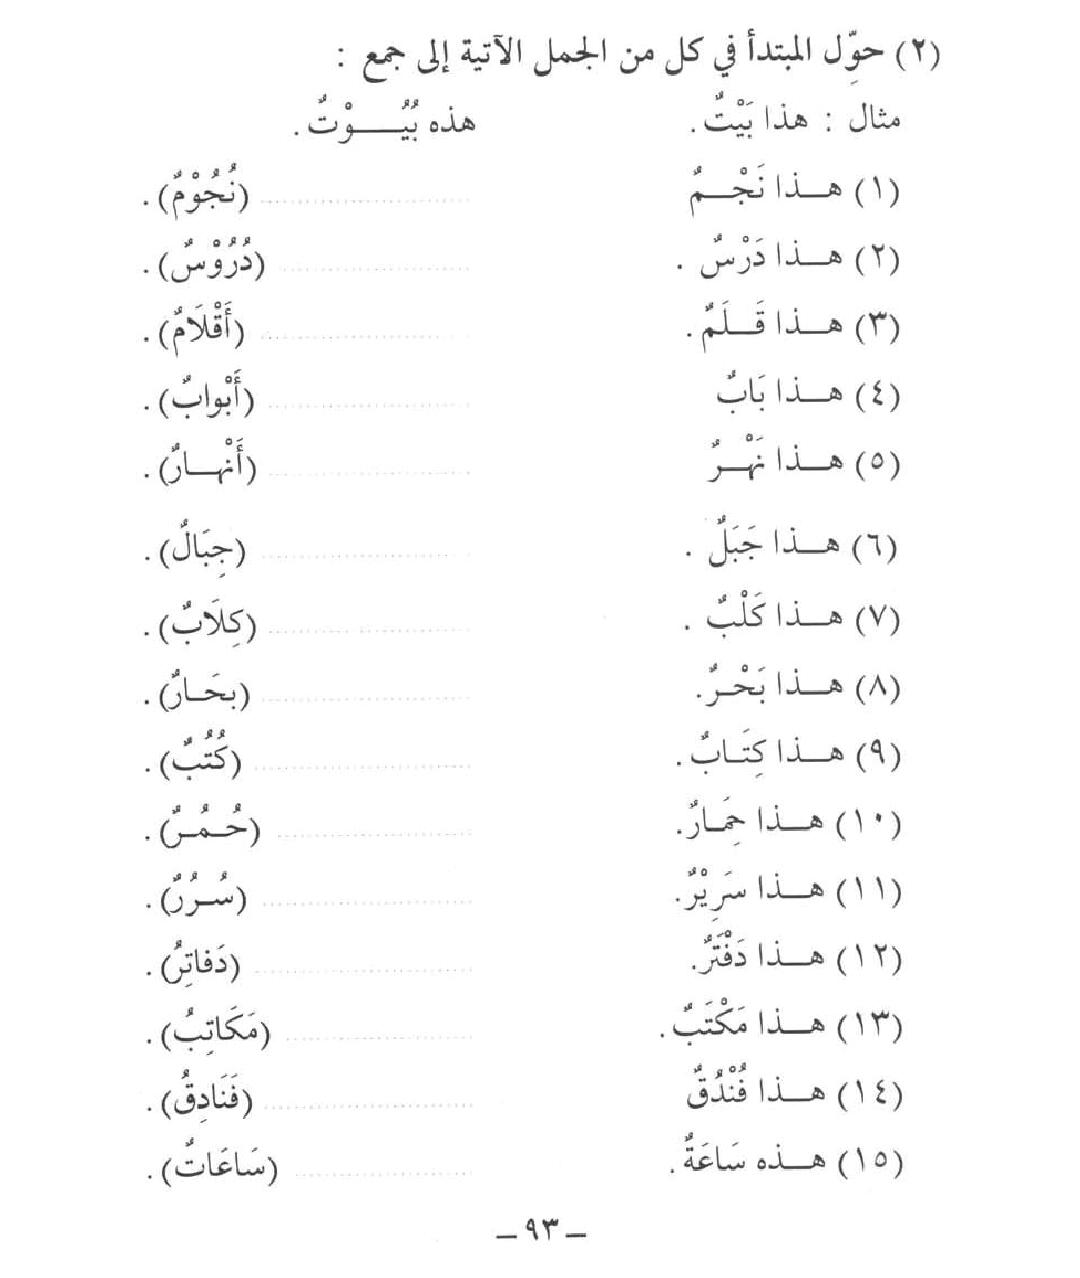 (٢) حوِّل المبتدأ في كل من الجمل الآتية إلى جمع :
مثال : هذا بَيْتٌ. هذه بُيُـــوْتٌ.
(١) هـــذا نَجْـــمٌ .................... (نُجُوْمٌ).
(٢) هـــذا دَرْسٌ . .................... (دُرُوْسٌ).
(٣) هـــذا قَـــلَمٌ. .................... (أَقْلَامٌ).
(٤) هـــذا بَابٌ .................... (أَبْوابٌ).
(٥) هـــذا نَهْـــرٌ .................... (أَنْهـــارٌ).
(٦) هـــذا جَبَلٌ . .................... (جِبَالٌ).
(٧) هـــذا كَلْبٌ . .................... (كِلَابٌ).
(٨) هـــذا بَحْـرٌ. .................... (بحَـارٌ).
(٩) هـــذا كِتَـابٌ. .................... (كُتُبٌ).
(١٠) هـــذا حِمَـارٌ. .................... (حُـمُـرٌ).
(١١) هـــذا سَرِيْرٌ. .................... (سُـرُرٌ).
(١٢) هـــذا دَفْتَرٌ. .................... (دَفاتِرُ).
(١٣) هـــذا مَكْتَبٌ. .................... (مَكَاتِبُ).
(١٤) هـــذا فُنْدُقٌ .................... (فَنَادِقُ).
(١٥) هـــذه سَاعَةٌ. .................... (سَاعَاتٌ).
– ٩٣ –